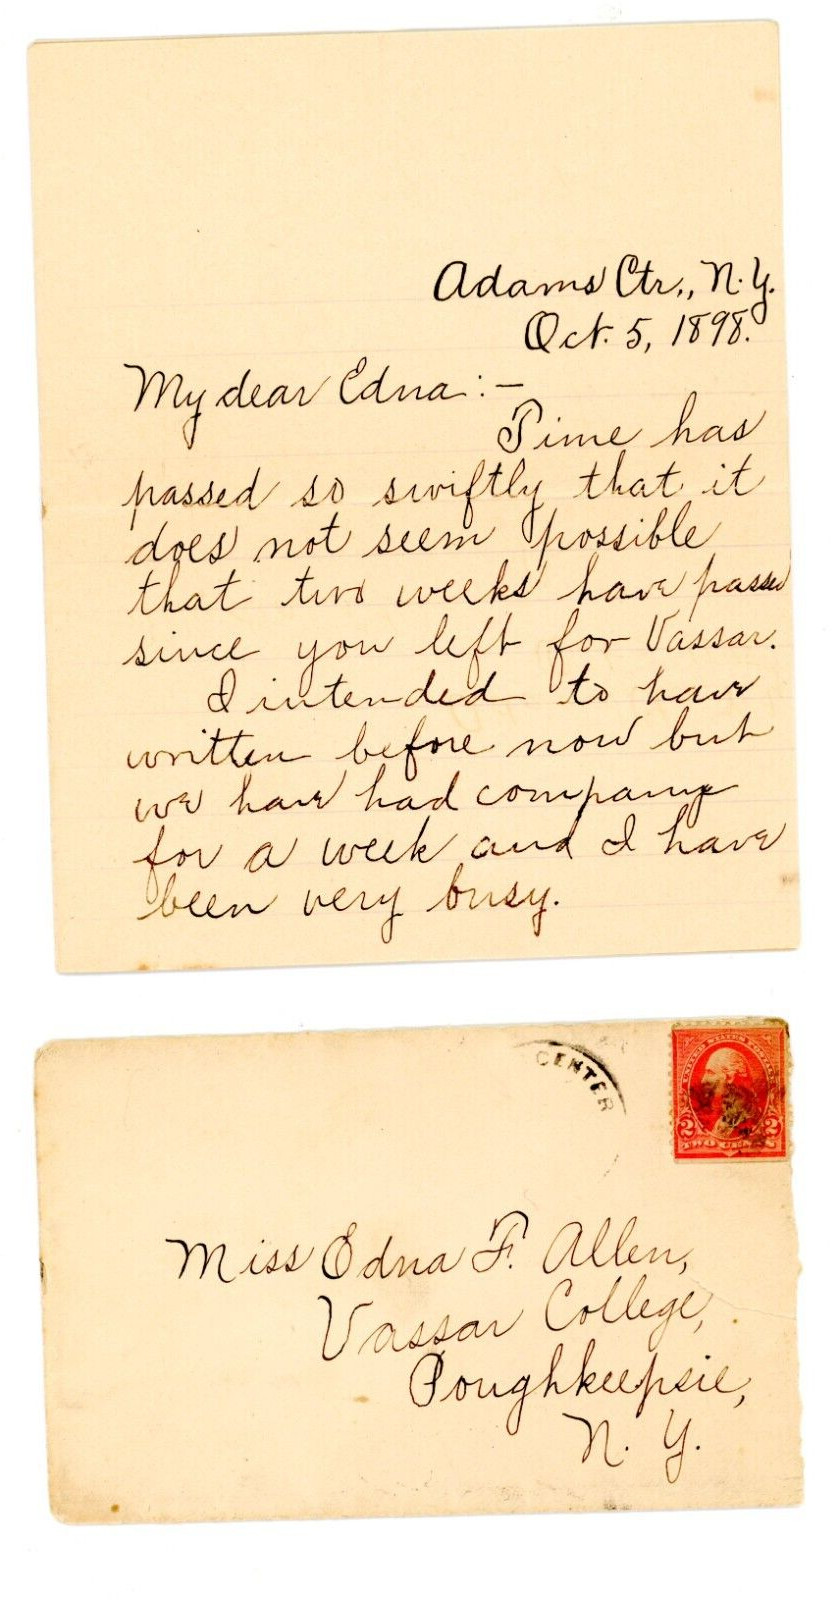 Adams Ctr., N.Y.
Oct. 5, 1898.
My dear Edna:—
Time has
passed so swiftly that it
does not seem possible
that two weeks have passed
since you left for Vassar.
I intended to have
written before now but
we have had company
for a week and I have
been very busy.
CENTER
2 2
Miss Edna F. Allen,
Vassar College,
Poughkeepsie,
N. Y.